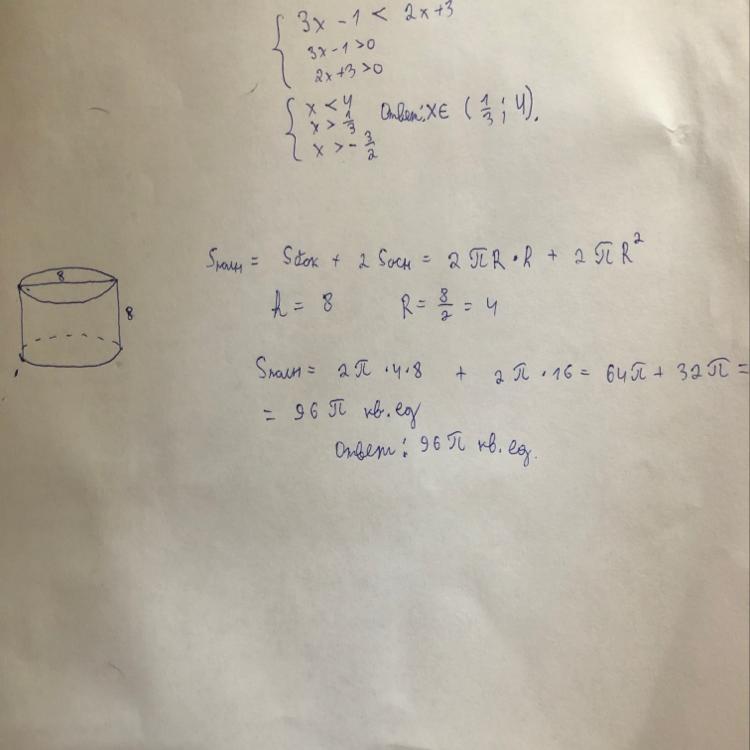 3x - 1 < 2x + 3
3x - 1 > 0
2x + 3 > 0
x < 4
x > 1/3 Ответ: x ∈ (1/3; 4).
x > - 3/2
Sполн = Sбок + 2 Sосн = 2πR·h + 2πR²
8
8
h = 8 R = 8/2 = 4
Sполн = 2π·4·8 + 2π·16 = 64π + 32π =
= 96π кв. ед
Ответ: 96π кв. ед.